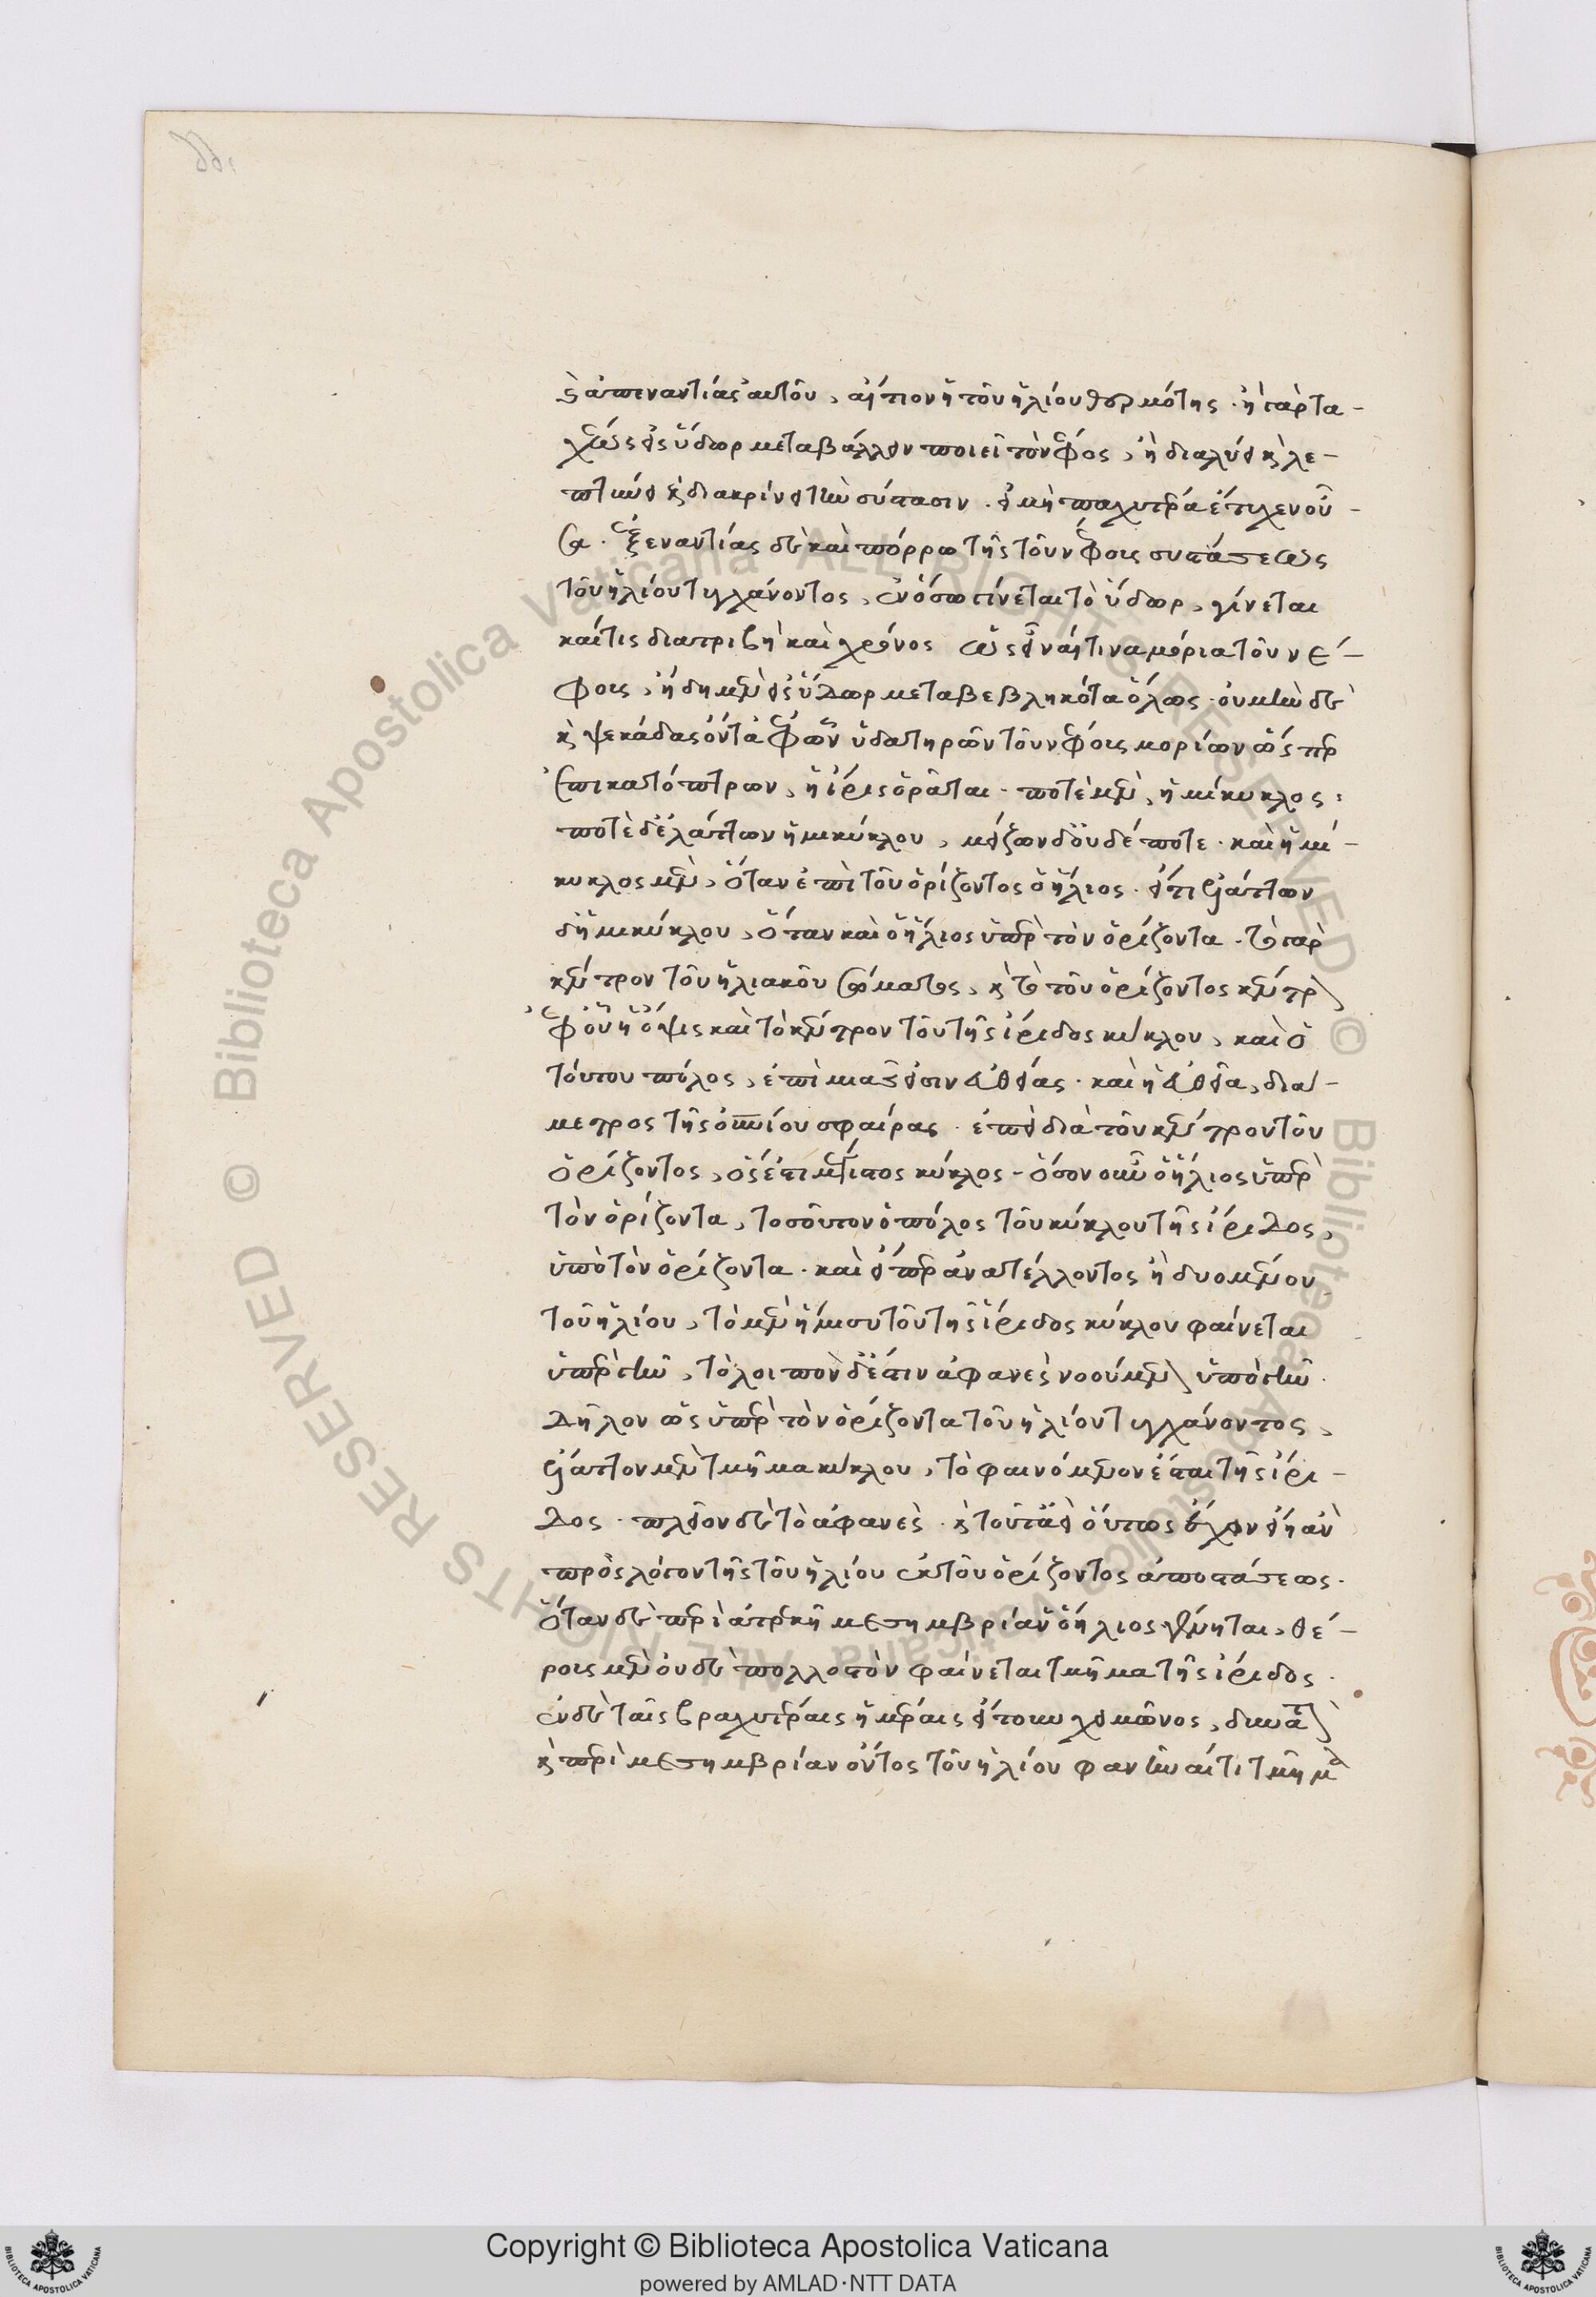 ἐξ ἀπεναντίας αὐτοῦ, αἴτιον ἡ τοῦ ἡλίου θερμότης. ἢ γὰρ τα-
χέως εἰς ὕδωρ μεταβάλλειν ποιεῖ τὸ νέφος, ἢ διαλύει καὶ λε-
πτύνει καὶ διακρίνει τὴν σύστασιν. εἰ μὴ παχυτέρα ἔτυχεν οὖ-
σα. ἐξεναντίας δὲ καὶ πόρρω τῆς τοῦ νέφους συστάσεως
τοῦ ἡλίου τυγχάνοντος, ἐν ὅσω γίνεται τὸ ὕδωρ, γίνεται
καί τις διατριβὴ καὶ χρόνος ὡς εἶναί τινα μόρια τοῦ νέ-
φους, ἤδη μὲν εἰς ὕδωρ μεταβεβληκότα ὅλως. οὐ μὴν δὲ
καὶ ψεκάδας ὄντα ἐφ' ὧν ὑδατηρῶν τοῦ νέφους μορίων ὥσπερ
ἐπὶ κατόπτρων, ἡ ἶρις ὁρᾶται. ποτὲ μὲν, ἡμίκυκλος·
ποτὲ δ' ἐλάττων ἡμικύκλου, μείζων δ' οὐδέποτε. καὶ ἡμί-
κυκλος μὲν, ὅταν ἐπὶ τοῦ ὁρίζοντος ὁ ἥλιος. ἔτι ἐλάττων
δ' ἡμικύκλου, ὅταν καὶ ὁ ἥλιος ὑπὲρ τὸν ὁρίζοντα. τὸ γὰρ
κέντρον τοῦ ἡλιακοῦ σώματος, καὶ τὸ τοῦ ὁρίζοντος κέντρον
ἐφ' οὗ ἡ ὄψις καὶ τὸ κέντρον τοῦ τῆς ἴριδος κύκλου, καὶ ὁ
τούτου πόλος, ἐπὶ μιᾶς εἰσιν εὐθείας. καὶ ἡ εὐθεῖα, διά-
μετρος τῆς οὐρανίου σφαίρας. ἐπεὶ διὰ τοῦ κέντρου τοῦ
ὁρίζοντος, ὅς ἐστι μέγιστος κύκλος. ὅσον οὖν ὁ ἥλιος ὑπὲρ
τὸν ὁρίζοντα, τοσοῦτον ὁ πόλος τοῦ κύκλου τῆς ἴριδος,
ὑπὸ τὸν ὁρίζοντα. καὶ εἴπερ ἀνατέλλοντος ἢ δυομένου
τοῦ ἡλίου, τὸ μὲν ἥμισυ τοῦ τῆς ἴριδος κύκλου φαίνεται
ὑπὲρ γῆν, τὸ λοιπὸν δ' ἐστιν ἀφανὲς νοούμενον ὑπὸ γῆν.
δῆλον ὡς ὑπὲρ τὸν ὁρίζοντα τοῦ ἡλίου τυγχάνοντος,
ἐλάττον μὲν τμῆμα κύκλου, τὸ φαινόμενον ἔσται τῆς ἴρι-
δος. πλεῖον δὲ τὸ ἀφανές. καὶ τοῦτ' ἀεὶ οὕτως ἔχειν εἴη ἂν
πρὸς λόγον τῆς τοῦ ἡλίου ἐκ τοῦ ὁρίζοντος ἀποστάσεως.
ὅταν δὲ περὶ αὐτὴν μεσημβρίαν ὁ ἥλιος γένηται, θέ-
ρους μὲν οὐδὲ πολλοστὸν φαίνεται τμῆμα τῆς ἴριδος.
ἐν δὲ ταῖς βραχυτέραις ἡμέραις ἤτοι χειμῶνος, δύναται
καὶ περὶ μεσημβρίαν ὄντος τοῦ ἡλίου φανῆναί τι τμῆμα
Copyright © Biblioteca Apostolica Vaticana
powered by AMLAD·NTT DATA